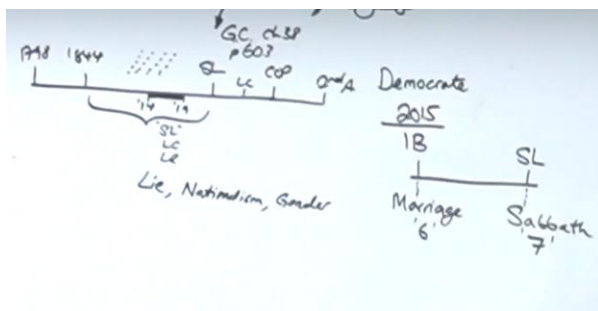 GC, ch 38
p603
1798 1844 SL LC COP 2nd A
'14 '19
"SL"
LC
LR
Lie, Nationalism, Gender
Democrate
2015
1B
SL
Marriage Sabbath
'6' '7'